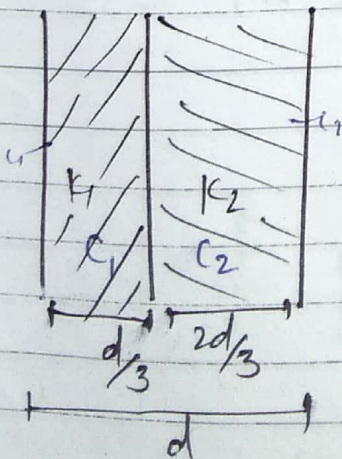 K1 K2
C1 C2
d/3 2d/3
d